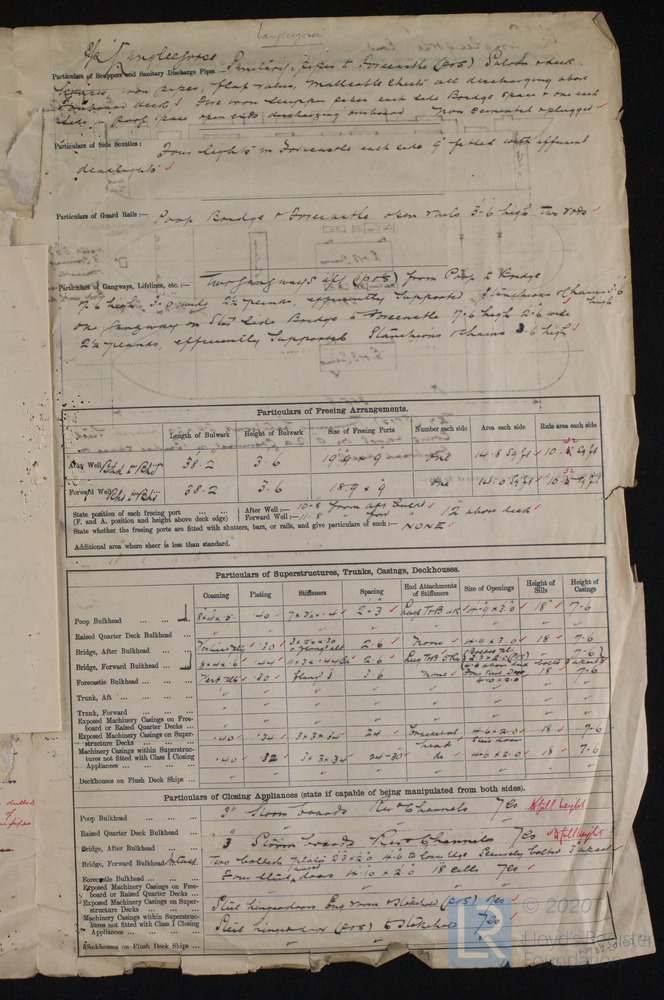 Langleegorse
S/S "Langleegorse
Particulars of Scuppers and Sanitary Discharge Pipes Sanitary pipes to Forecastle (P&S) Saloon & deck
iron pipes, flap valves, malleable chests all discharging above
deck, ✓ Five iron scupper pipes each side Bridge space & one each
side in Poop space open ends discharging outboard Iron cemented & plugged ✓
Particulars of Side Scuttles: Four lights in Forecastle each side 9" fitted with efficient
deadlights ✓
Particulars of Guard Rails:— Poop Bridge & Forecastle open rails 3'-6 high two rods ✓
Particulars of Gangways, Lifelines, etc.:— Two gangways aft (P&S) from Poop to Bridge
7'-6 high 3'-0 wide 2½" planks, efficiently supported Stanchions & chains 3'-6 high
One gangway on Stbd side Bridge to Forecastle 7'-6 high 2'-6 wide
2½" planks, efficiently supported Stanchions & chains 3'-6 high ✓
Particulars of Freeing Arrangements.
Length of Bulwark Height of Bulwark Size of Freeing Ports Number each side Area each side Rule area each side
After Well Bhd to Bhd 38.2 3.6 19'.9 x 9 One 14.8 Sq ft ✓ 10.5 Sq ft
Forward Well Bhd to Bhd 38.2 3.6 18.9 x 9 One 14.0 Sq ft ✓ 10.5 Sq ft
State position of each freeing port ... ... After Well:— 10-8 from aft
(F. and A. position and height above deck edge) Forward Well:— 11-8 " ford " 12 above deck ✓
State whether the freeing ports are fitted with shutters, bars, or rails, and give particulars of such:— NONE ✓
Additional area where sheer is less than standard.
Particulars of Superstructures, Trunks, Casings, Deckhouses.
Coaming Plating Stiffeners Spacing End Attachments of Stiffeners Size of Openings Height of Sills Height of Casings
Poop Bulkhead ... ... .40 ✓ 2-3 ✓ 18" ✓ 7-6
Raised Quarter Deck Bulkhead ... " " " " " " " "
Bridge, After Bulkhead ... .30 ✓ 2.6 ✓ None ✓ 4.9 x 3.0 ✓ 18 ✓ 7-6
Bridge, Forward Bulkhead ... 8 x 4 x .6 ✓ .44 ✓ 2-6 ✓ 7-6
Forecastle Bulkhead ... ... .30 ✓ 3.6 None ✓ 4-10 x 2-0 18 ✓ 7-6
Trunk, Aft ... ... ... " " " " " " " "
Trunk, Forward ... ... " " " " " " " "
Exposed Machinery Casings on Freeboard or Raised Quarter Decks ... " " " " " " " "
Exposed Machinery Casings on Superstructure Decks ... ... .40 ✓ .34 ✓ 3 x 3 x .34 ✓ 24 ✓ 4.6 x 2.0 ✓ 18 ✓ 7-6
Machinery Casings within Superstructures not fitted with Class I Closing Appliances ... ... .40 ✓ .32 3 x 3 x .34 24-30 ✓ do ✓ 4.6 x 2.0 ✓ 18 ✓ 7-6
Deckhouses on Flush Deck Ships ... " " " " " " " "
Particulars of Closing Appliances (state if capable of being manipulated from both sides).
Poop Bulkhead ... ... 3" Storm boards Rivd Channels Yes ✓ full height
Raised Quarter Deck Bulkhead ... "
Bridge, After Bulkhead ... 3 Storm boards Rivd Channels Yes ✓ full height
Bridge, Forward Bulkhead Two bolted plates 2.3 x 2.0 4.6 to lower edge Securely bolted 3" apart ✓
Forecastle Bulkhead ... ... Four steel hinged doors 4.10 x 2.0 18 cills Yes ✓
Exposed Machinery Casings on Freeboard or Raised Quarter Decks ... "
Exposed Machinery Casings on Superstructure Decks ... ... Steel hinged doors Eng room & Stokehold (P&S) Yes ✓
Machinery Casings within Superstructures not fitted with Class I Closing Appliances ... ... Steel hinged door (P&S) to Stokehold Yes ✓
Deckhouses on Flush Deck Ships ... "
© 2020
LR
Lloyd's Register
Foundation